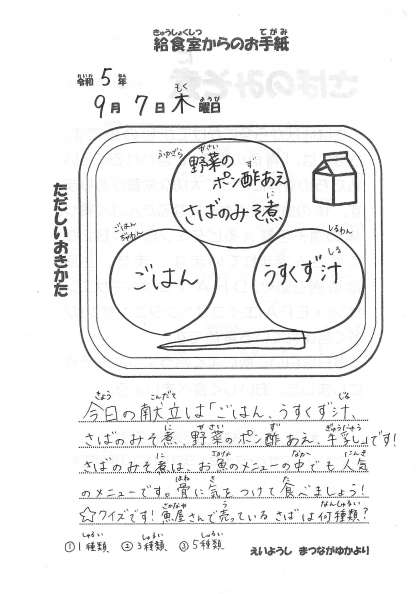 きゅうしょくしつ てがみ
給食室からのお手紙
れいわ ねん
令和 5年
もく ようび
9月 7日 木曜日
ただしいおきかた
ふかざら
やさい
野菜の
ず
ポン酢あえ
に
さばのみそ煮
ごはん
ぢゃわん
ごはん
しるわん
じる
うすくず汁
きょう こんだて じる
今日の献立は「ごはん、うすくず汁、
に やさい ず ぎゅうにゅう
さばのみそ煮、野菜のポン酢あえ、牛乳」です!
に さかな なか にんき
さばのみそ煮は、お魚のメニューの中でも人気
ほね き た
のメニューです。骨に気をつけて食べましょう!
さかなや う なんしゅるい
☆クイズです!魚屋さんで売っているさばは何種類?
しゅるい しゅるい しゅるい
①1種類 ②3種類 ③5種類
えいようし まつながゆかより